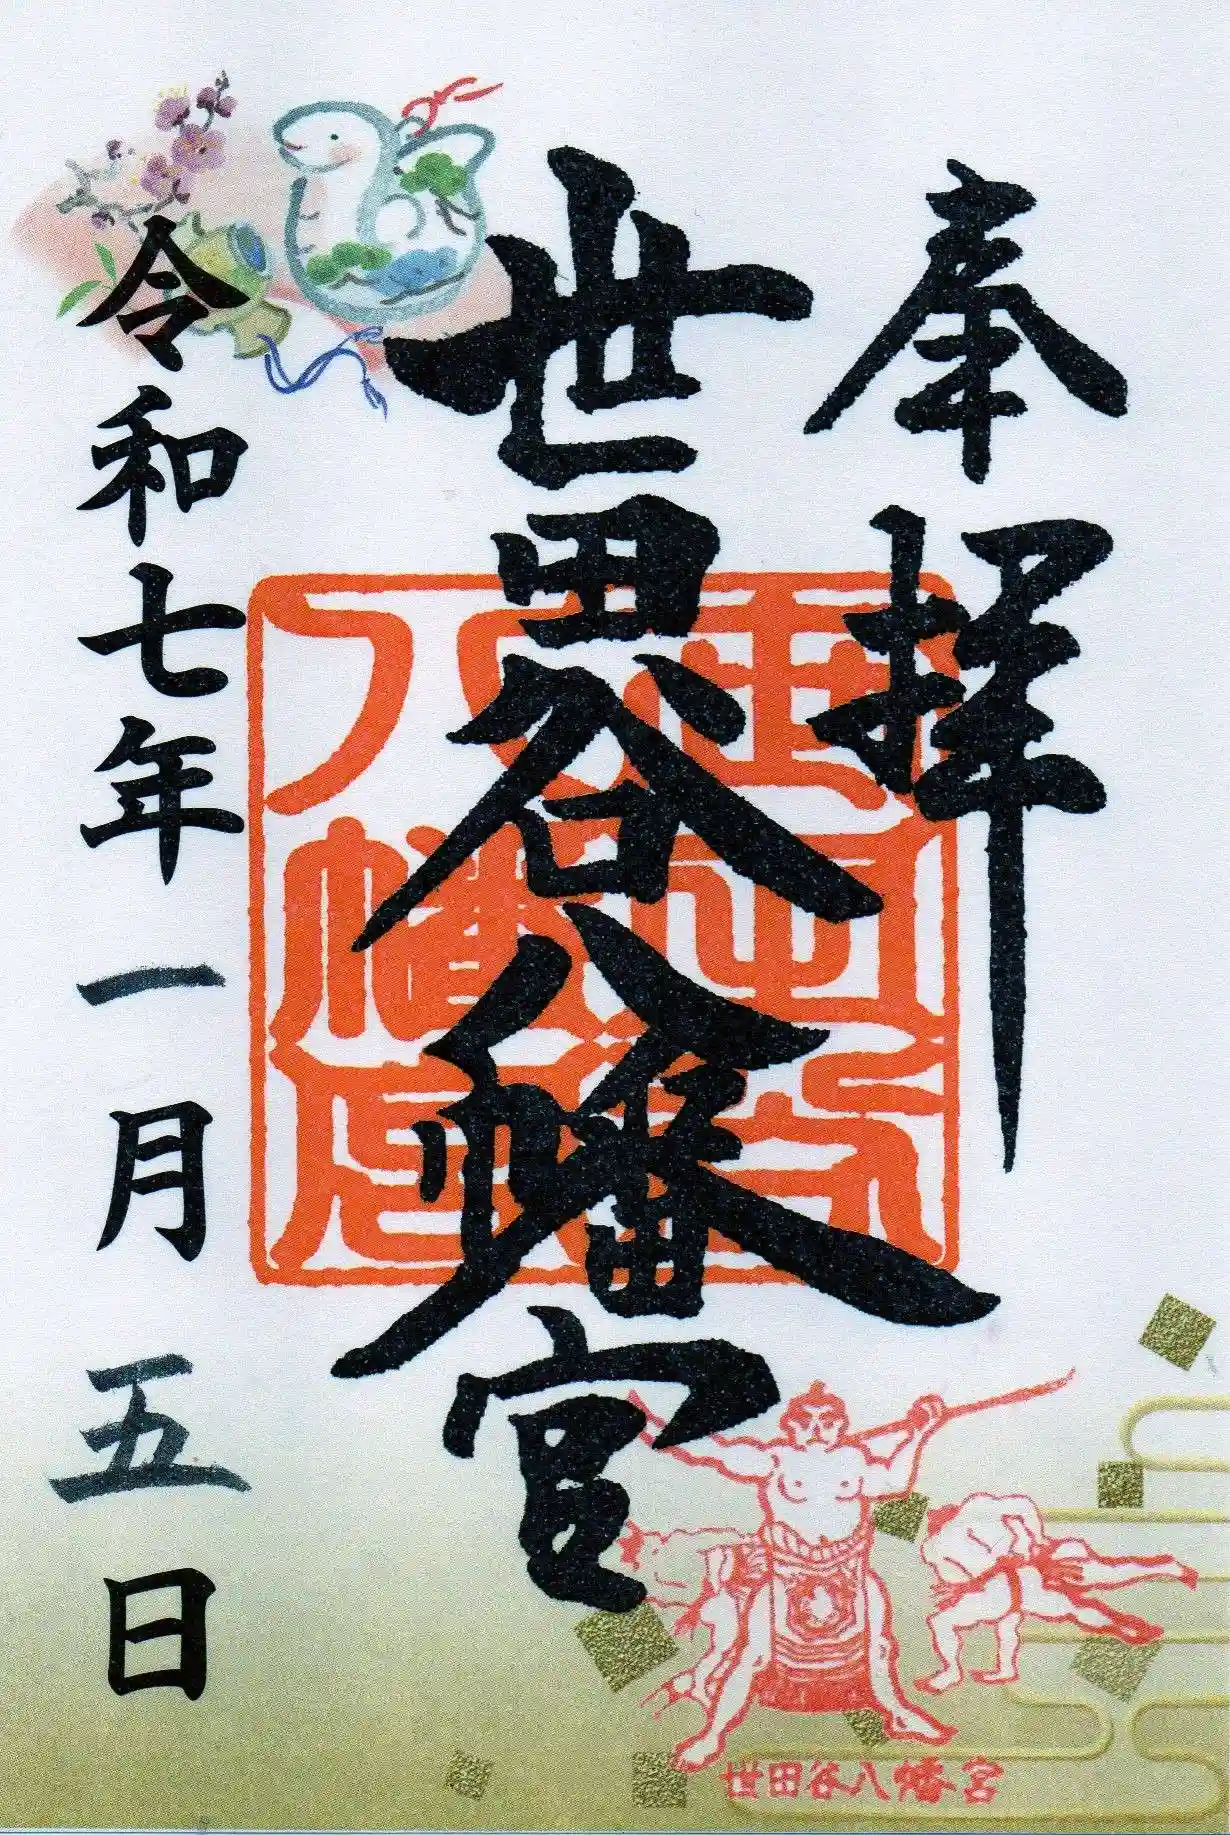 奉拝
世田谷八幡宮
令和七年一月五日
世田谷八幡宮
世田谷八幡宮